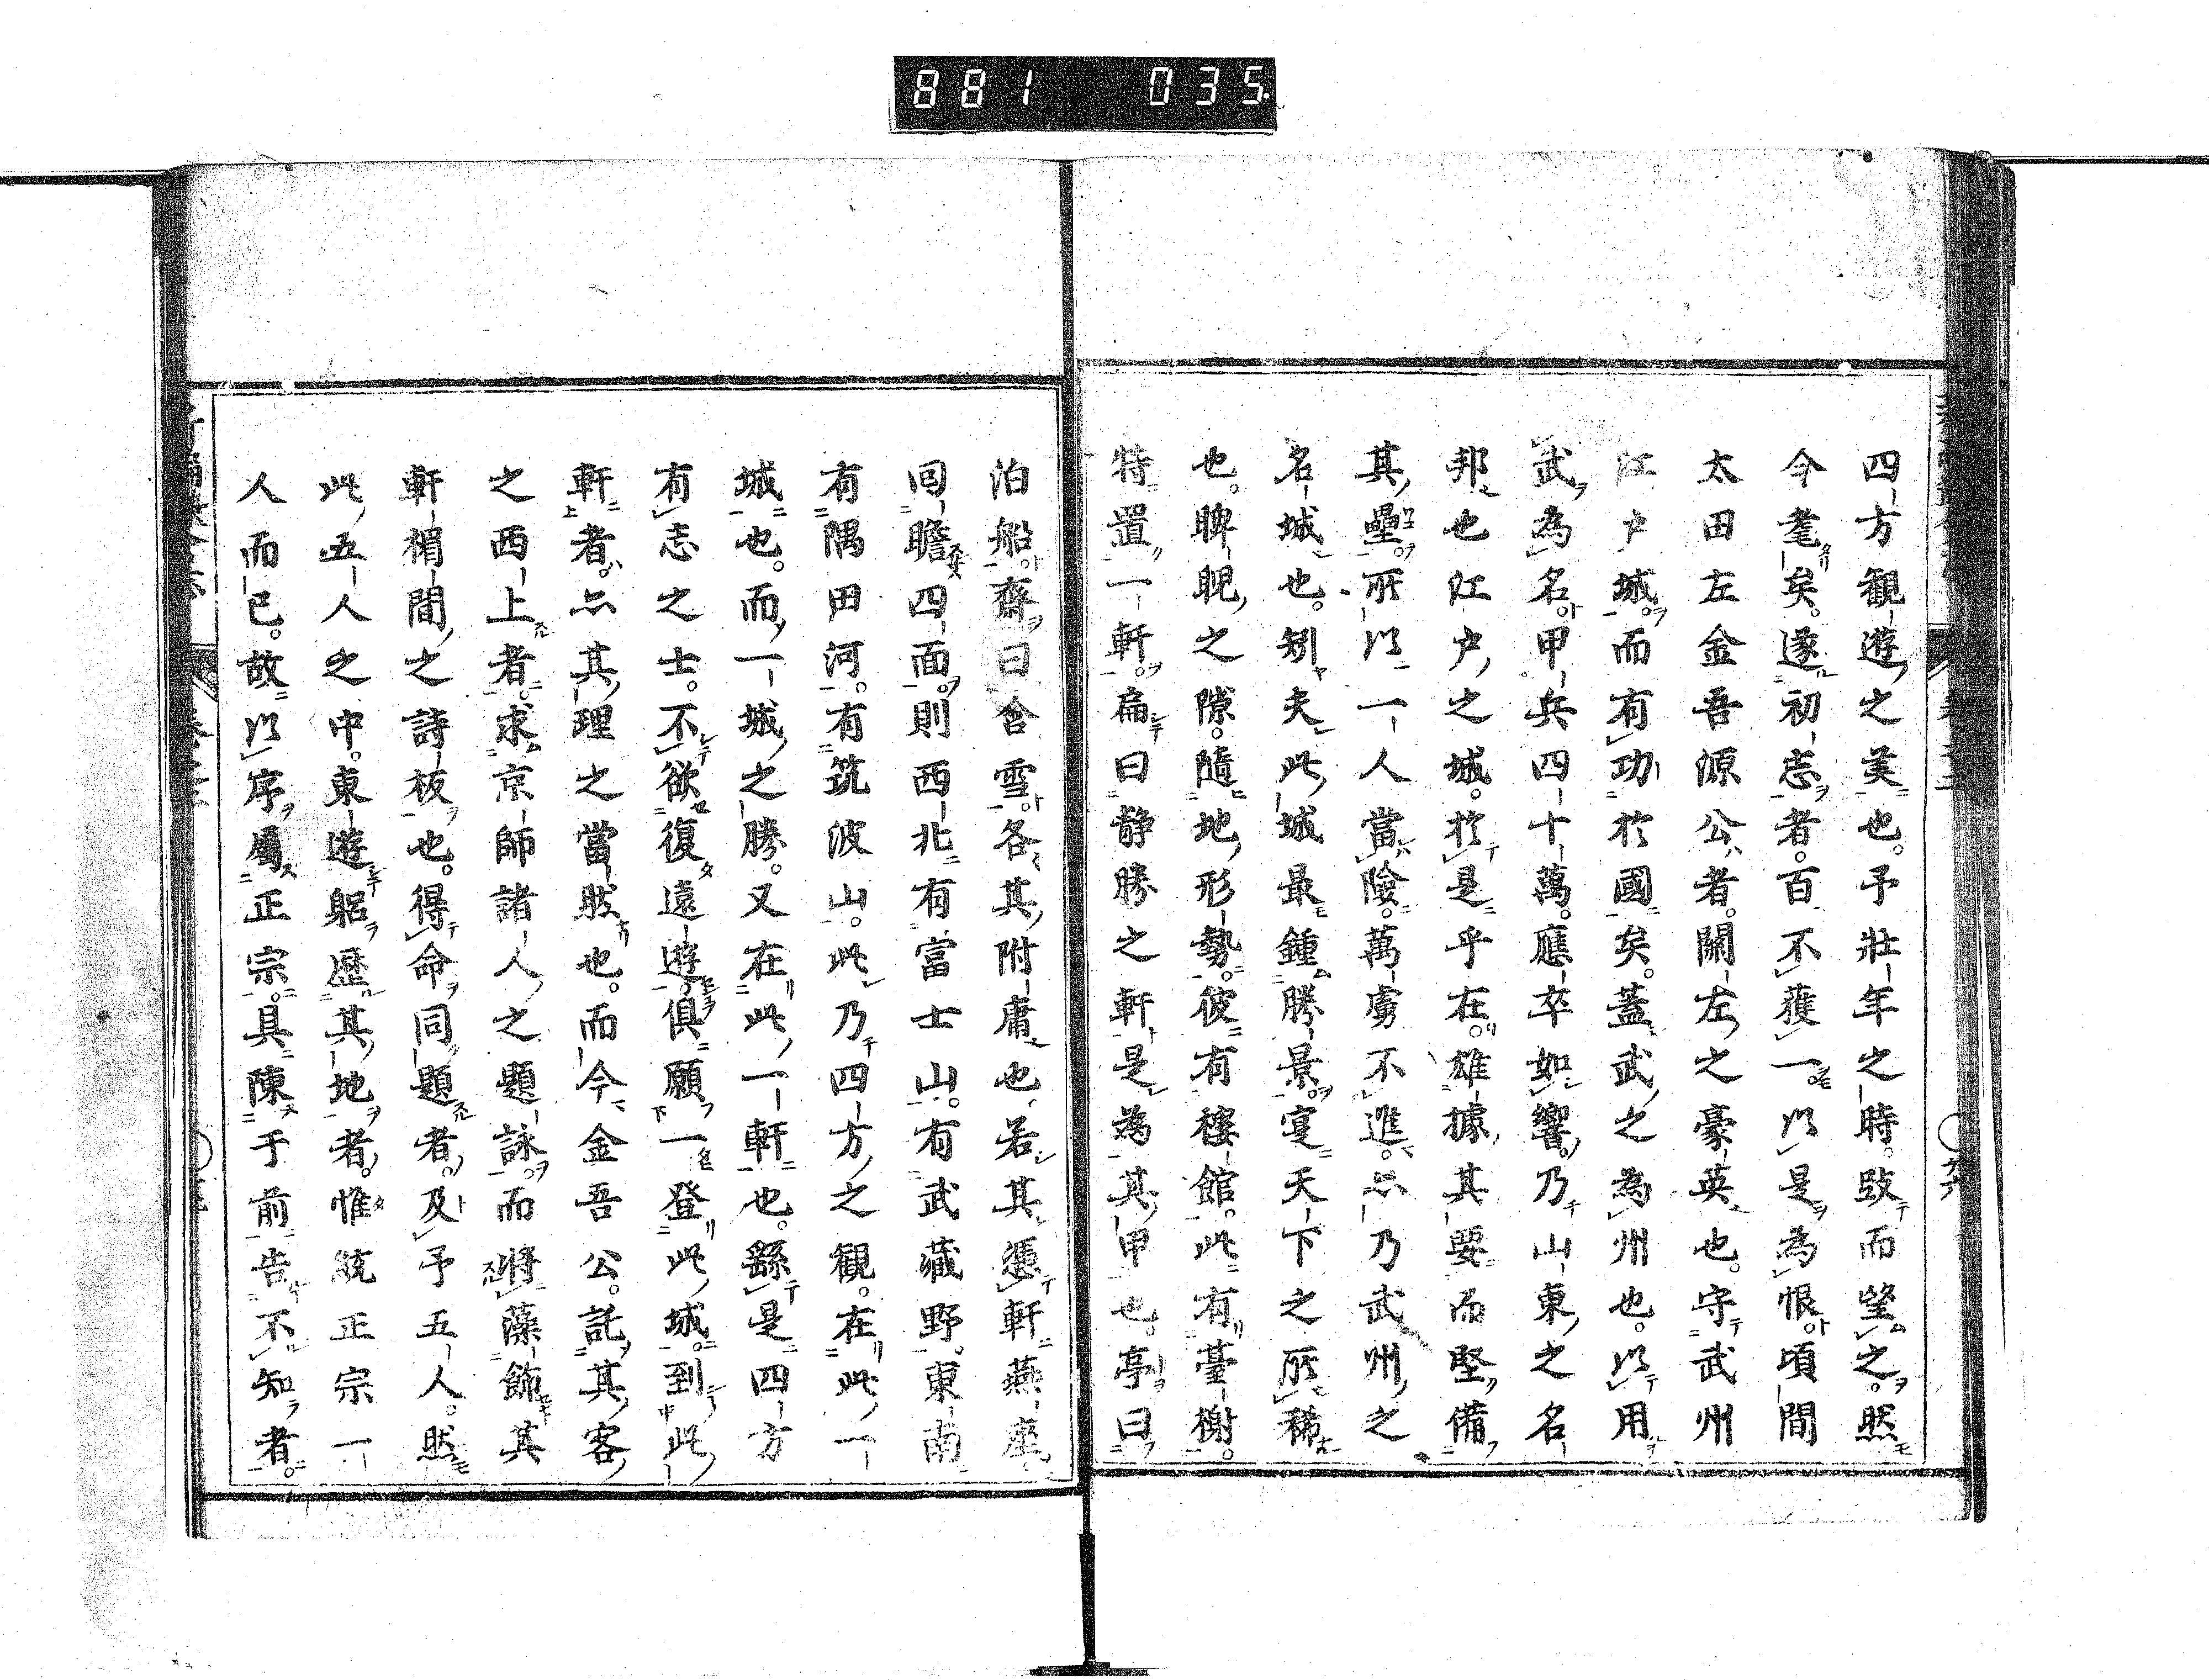 881 035
四方観遊之美也予壮年之時跂而望之然
今耄矣遂初志者百不獲一以是為恨頃間
太田左金吾源公者關左之豪英也守武州
江戸城而有功於國矣蓋武之為州也以用
武為名甲兵四十萬應卒如響乃山東之名
邦也江戸之城於是乎在雄據其要而堅備
其壘所以一人當險萬虜不進亦乃武州之
名城也矧夫此城最鍾勝景寔天下之所稀
也睥睨之隙隨地形勢彼有樓館此有臺榭
特置一軒扁曰静勝之軒是為其甲也亭曰
泊船齋曰含雪各其附庸也若其憑軒燕座
回瞻四面則西北有富士山有武藏野東南
有隅田河有筑波山此乃四方之觀在此一
城也而一城之勝又在此一軒也繇是四方
有志之士不欲復遠遊俱願一登此城到此
軒者亦其理之當然也而今金吾公託其客
之西上者求京師諸人之題詠而將藻飾其
軒楣間之詩板也得命同題者及予五人然
此五人之中東遊躬歷其地者惟統正宗一
人而已故以序屬正宗具陳于前告不知者